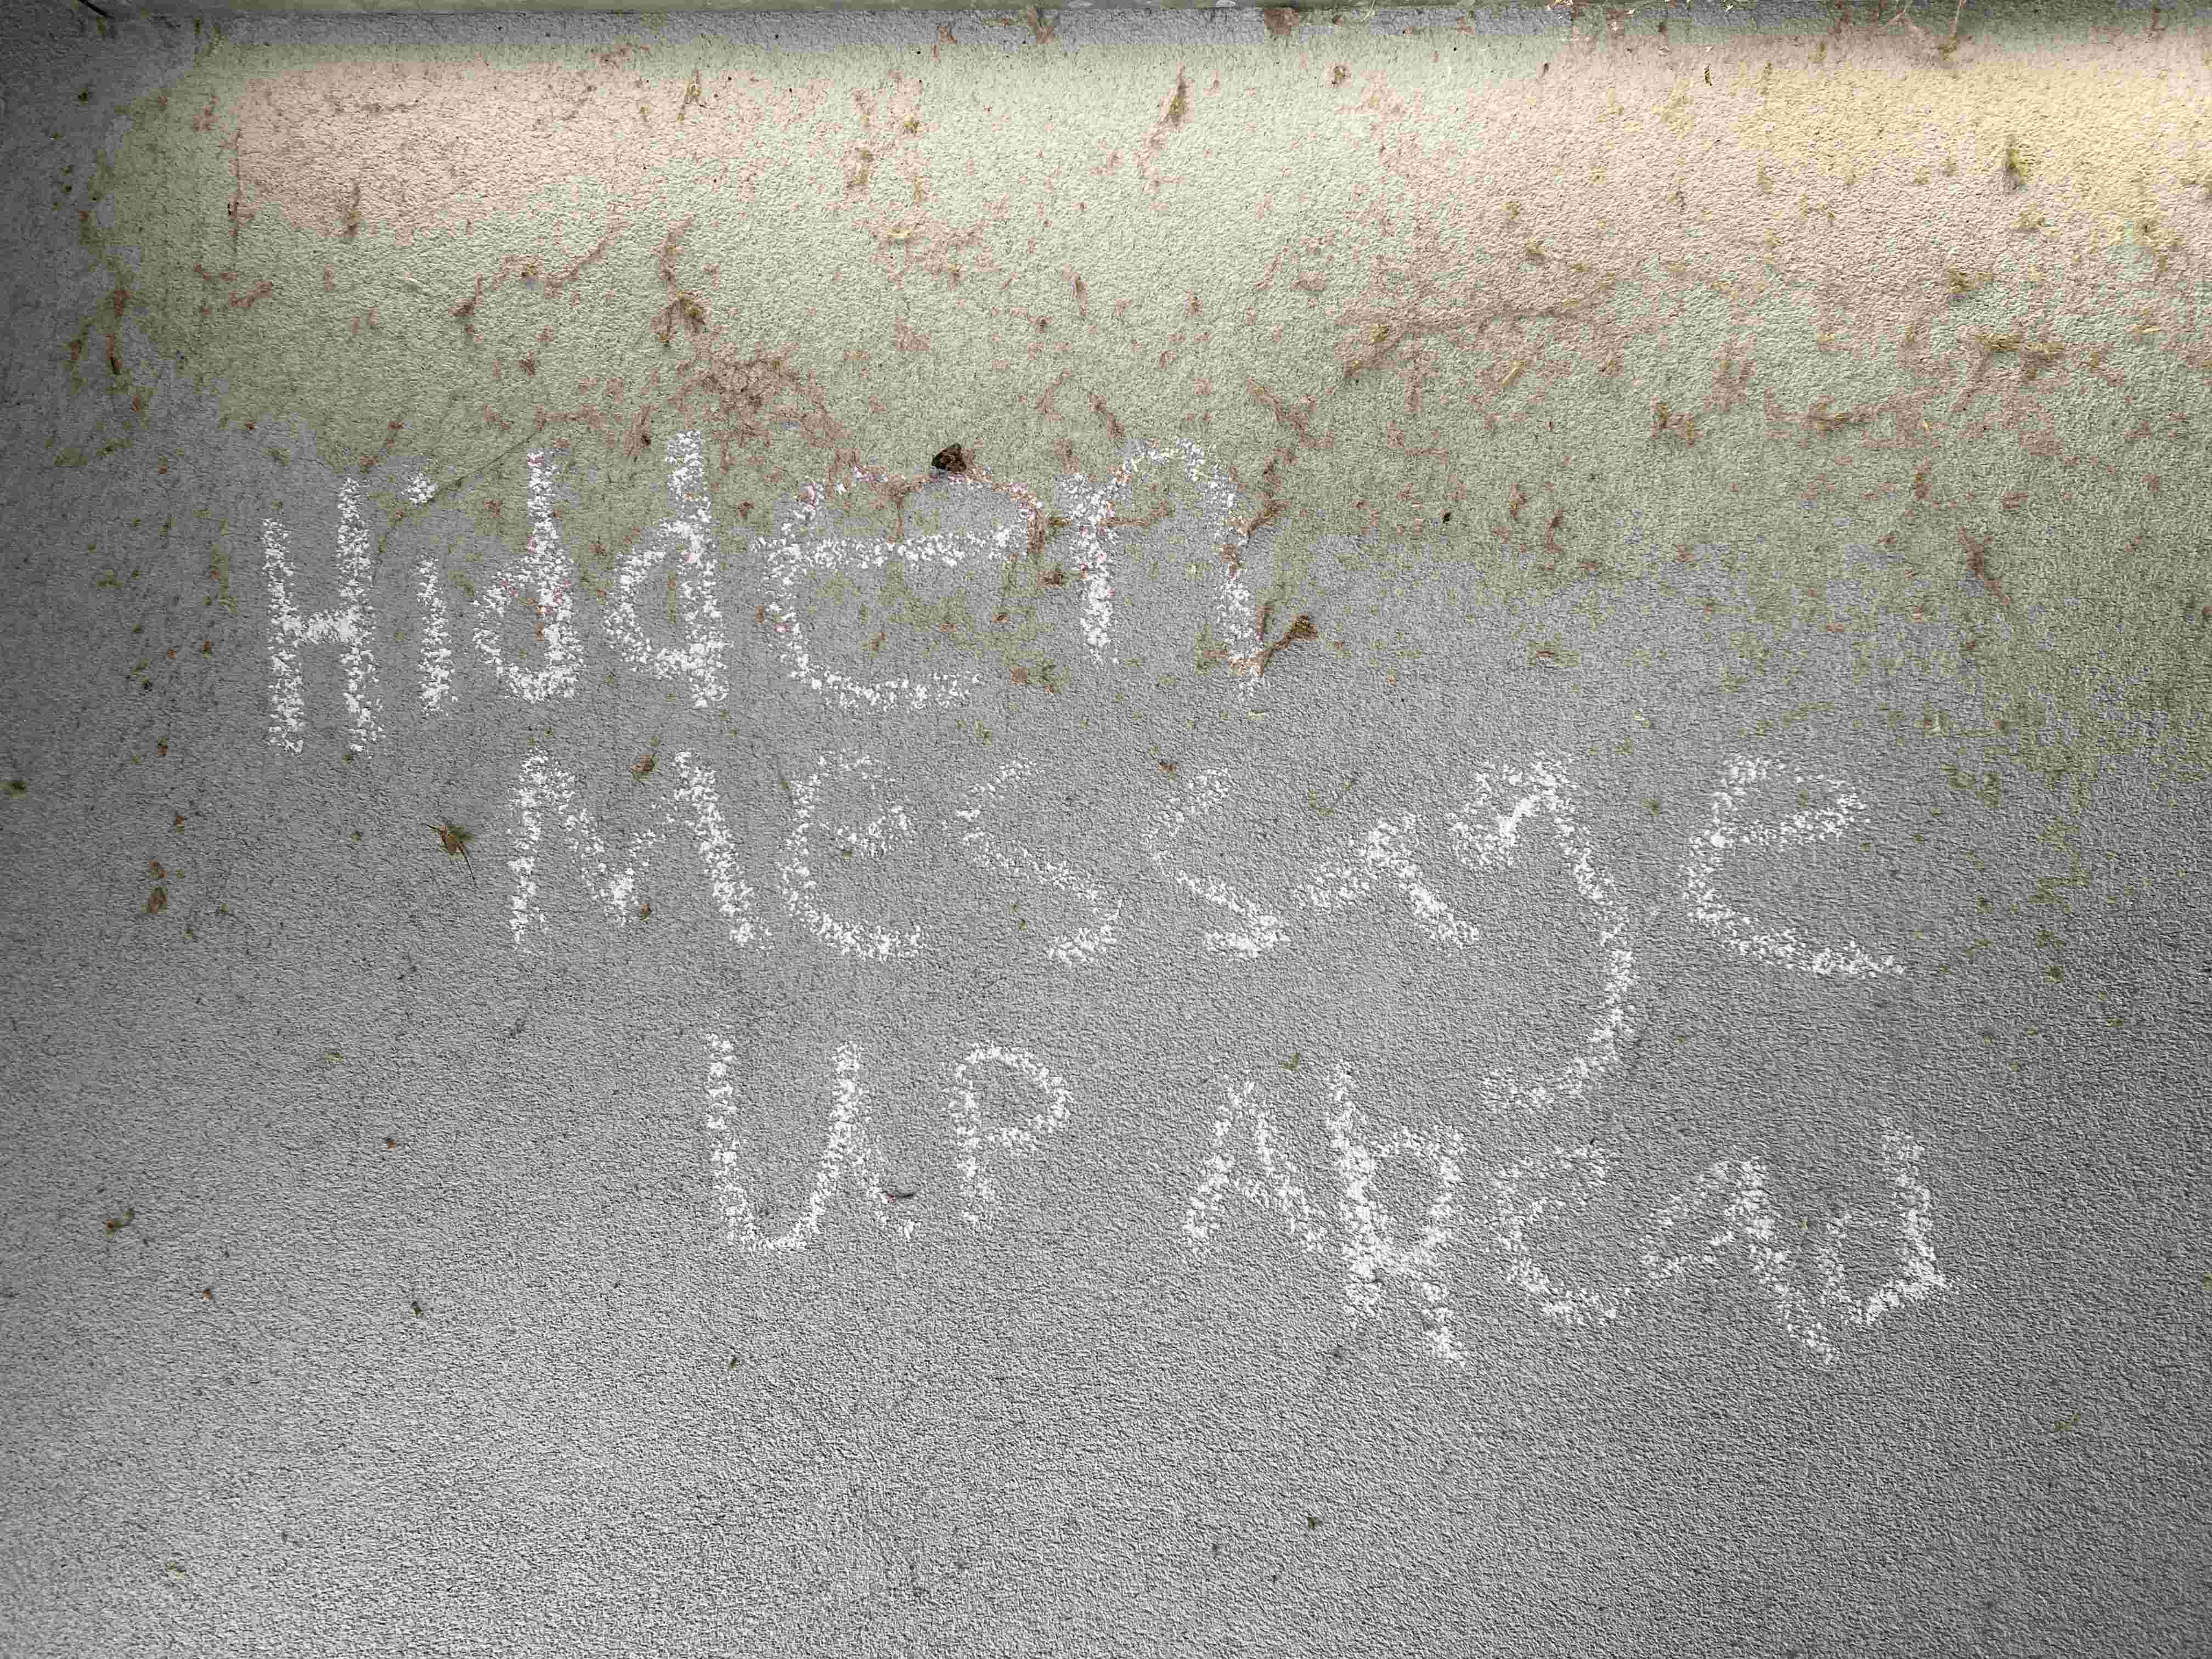 Hidden
Message
UP AheAd